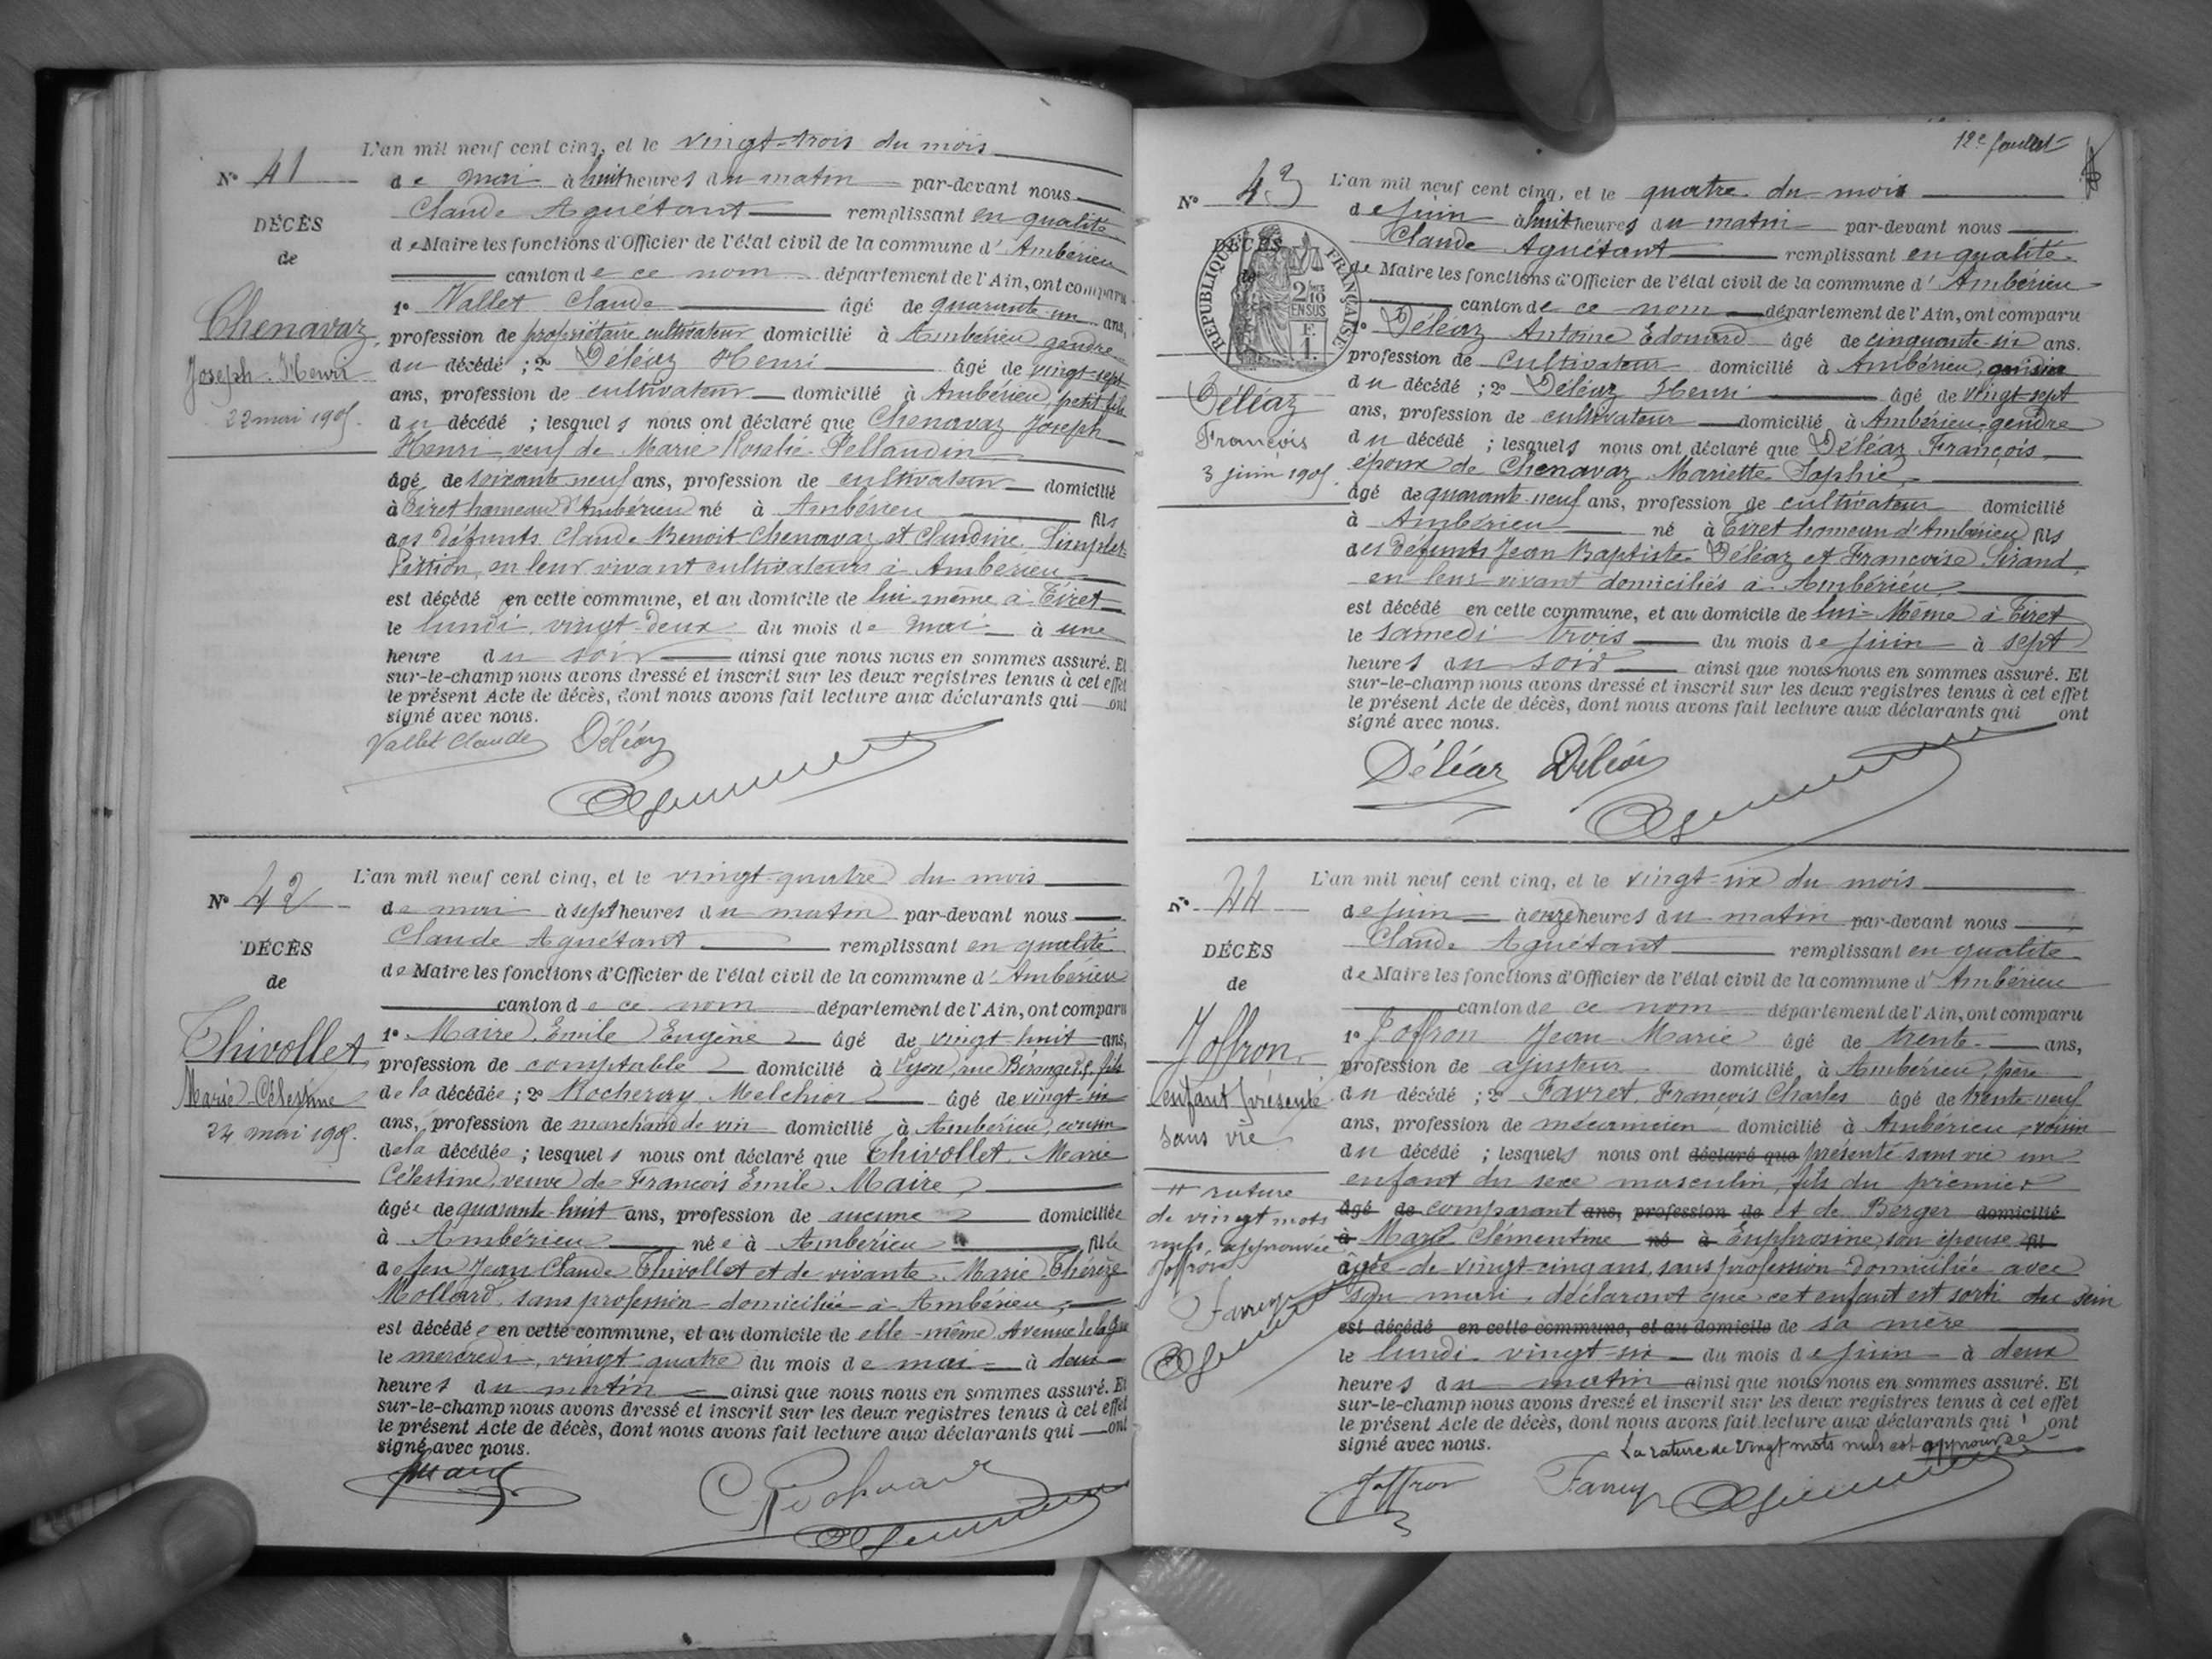 L'an mil neuf cent cinq, et le vingt-trois du mois
N° 41
de mai à huit heures du matin par-devant nous
Claude Aguétant remplissant en qualité
DÉCÈS
de Maire les fonctions d'Officier de l'état civil de la commune d'Ambérieu
de
canton de ce nom département de l'Ain, ont comparu
1° Vallet Claude âgé de quarante-un ans,
Chenavaz
profession de propriétaire cultivateur domicilié à Ambérieu gendre
Joseph-Henri
du décédé ; 2° Déléaz Henri âgé de vingt-sept
ans, profession de cultivateur domicilié à Ambérieu petit fils
22 mai 1905.
du décédé ; lesquels nous ont déclaré que Chenavaz Joseph
Henri, veuf de Marie Rosalie Pellaudin
âgé de soixante neuf ans, profession de cultivateur domicilié
à Tiret hameau d'Ambérieu né à Ambérieu fils
des défunts Claude Benoit Chenavaz et Claudine Simplet
en leur vivant cultivateurs à Ambérieu
est décédé en cette commune, et au domicile de lui-même à Tiret
le lundi vingt-deux du mois de mai à une
heure du soir ainsi que nous nous en sommes assuré. Et
sur-le-champ nous avons dressé et inscrit sur les deux registres tenus à cet effet
le présent Acte de décès, dont nous avons fait lecture aux déclarants qui ont
signé avec nous.
Vallet Claude Déléaz
L'an mil neuf cent cinq, et le vingt-quatre du mois
N° 42
de mai à sept heures du matin par-devant nous
Claude Aguétant remplissant en qualité
DÉCÈS
de Maire les fonctions d'Officier de l'état civil de la commune d'Ambérieu
de
canton de ce nom département de l'Ain, ont comparu
Thivollet
1° Maire Emile Eugène âgé de vingt-huit ans,
profession de comptable domicilié à Lyon, rue Béranger 5, fils
Marie-Célestine
de la décédée ; 2° Rocheray Melchior âgé de vingt-six
24 mai 1905.
ans, profession de marchand de vin domicilié à Ambérieu, cousin
de la décédée ; lesquels nous ont déclaré que Thivollet Marie
Célestine, veuve de François Emile Maire,
âgée de quarante-huit ans, profession de aucune domiciliée
à Ambérieu née à Ambérieu fille
de feu Jean Claude Thivollet et de vivante Marie Thérèze
Mollard, sans profession domiciliée à Ambérieu
est décédée en cette commune, et au domicile de elle-même Avenue de la Gare
le mercredi vingt-quatre du mois de mai à deux
heures du matin ainsi que nous nous en sommes assuré. Et
sur-le-champ nous avons dressé et inscrit sur les deux registres tenus à cet effet
le présent Acte de décès, dont nous avons fait lecture aux déclarants qui ont
signé avec nous.
12e feuillet
L'an mil neuf cent cinq, et le quatre du mois
N° 43
de juin à huit heures du matin par-devant nous
Claude Aguétant remplissant en qualité
DÉCÈS
de
RÉPUBLIQUE FRANÇAISE
2/10 EN SUS
F. 1.
de Maire les fonctions d'Officier de l'état civil de la commune d'Ambérieu
canton de ce nom département de l'Ain, ont comparu
1° Déléaz Antoine Edouard âgé de cinquante-six ans.
profession de cultivateur domicilié à Ambérieu, cousin
Déléaz
du décédé ; 2° Déléaz Henri âgé de vingt-sept
ans, profession de cultivateur domicilié à Ambérieu, gendre
François
du décédé ; lesquels nous ont déclaré que Déléaz François
3 juin 1905.
époux de Chenavaz Mariette Sophie,
âgé de quarante-neuf ans, profession de cultivateur domicilié
à Ambérieu né à Tiret hameau d'Ambérieu fils
des défunts Jean Baptiste Déléaz et Françoise Sirand,
en leur vivant domiciliés à Ambérieu,
est décédé en cette commune, et au domicile de lui-même à Tiret
le samedi trois du mois de juin à sept
heures du soir ainsi que nous nous en sommes assuré. Et
sur-le-champ nous avons dressé et inscrit sur les deux registres tenus à cet effet
le présent Acte de décès, dont nous avons fait lecture aux déclarants qui ont
signé avec nous.
Déléaz Déléaz
L'an mil neuf cent cinq, et le vingt-six du mois
N° 44
de juin à onze heures du matin par-devant nous
Claude Aguétant remplissant en qualité
DÉCÈS
de Maire les fonctions d'Officier de l'état civil de la commune d'Ambérieu
de
canton de ce nom département de l'Ain, ont comparu
Joffron
1° Joffron Jean Marie âgé de trente ans,
profession de ajusteur domicilié à Ambérieu, père
enfant présenté
du décédé ; 2° Favret François Charles âgé de trente-neuf
sans vie
ans, profession de mécanicien domicilié à Ambérieu, voisin
du décédé ; lesquels nous ont déclaré que présenté sans vie un
enfant du sexe masculin, fils du premier
rature
de vingt mots
nuls, approuvée
Joffron
âgé de comparant ans, profession de et de Berger domicilié
à Marie Clémentine né à Euphrosine, son épouse fil
âgée de vingt-cinq ans, sans profession domiciliée avec
son mari, déclarant que cet enfant est sorti du sein
est décédé en cette commune, et au domicile de sa mère
le lundi vingt-six du mois de juin à deux
heures du matin ainsi que nous nous en sommes assuré. Et
sur-le-champ nous avons dressé et inscrit sur les deux registres tenus à cet effet
le présent Acte de décès, dont nous avons fait lecture aux déclarants qui ont
signé avec nous. La rature de vingt mots nuls est approuvée
Joffron